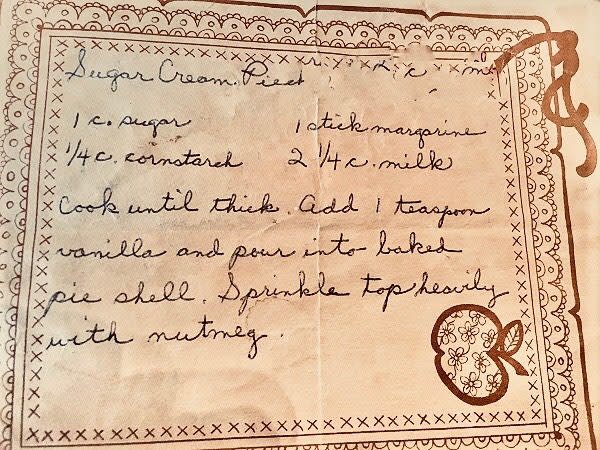 Sugar Cream Pie
1 c. sugar 1 stick margarine
1/4 c. cornstarch 2 1/4 c. milk
Cook until thick. Add 1 teaspoon
vanilla and pour into baked
pie shell. Sprinkle top heavily
with nutmeg.